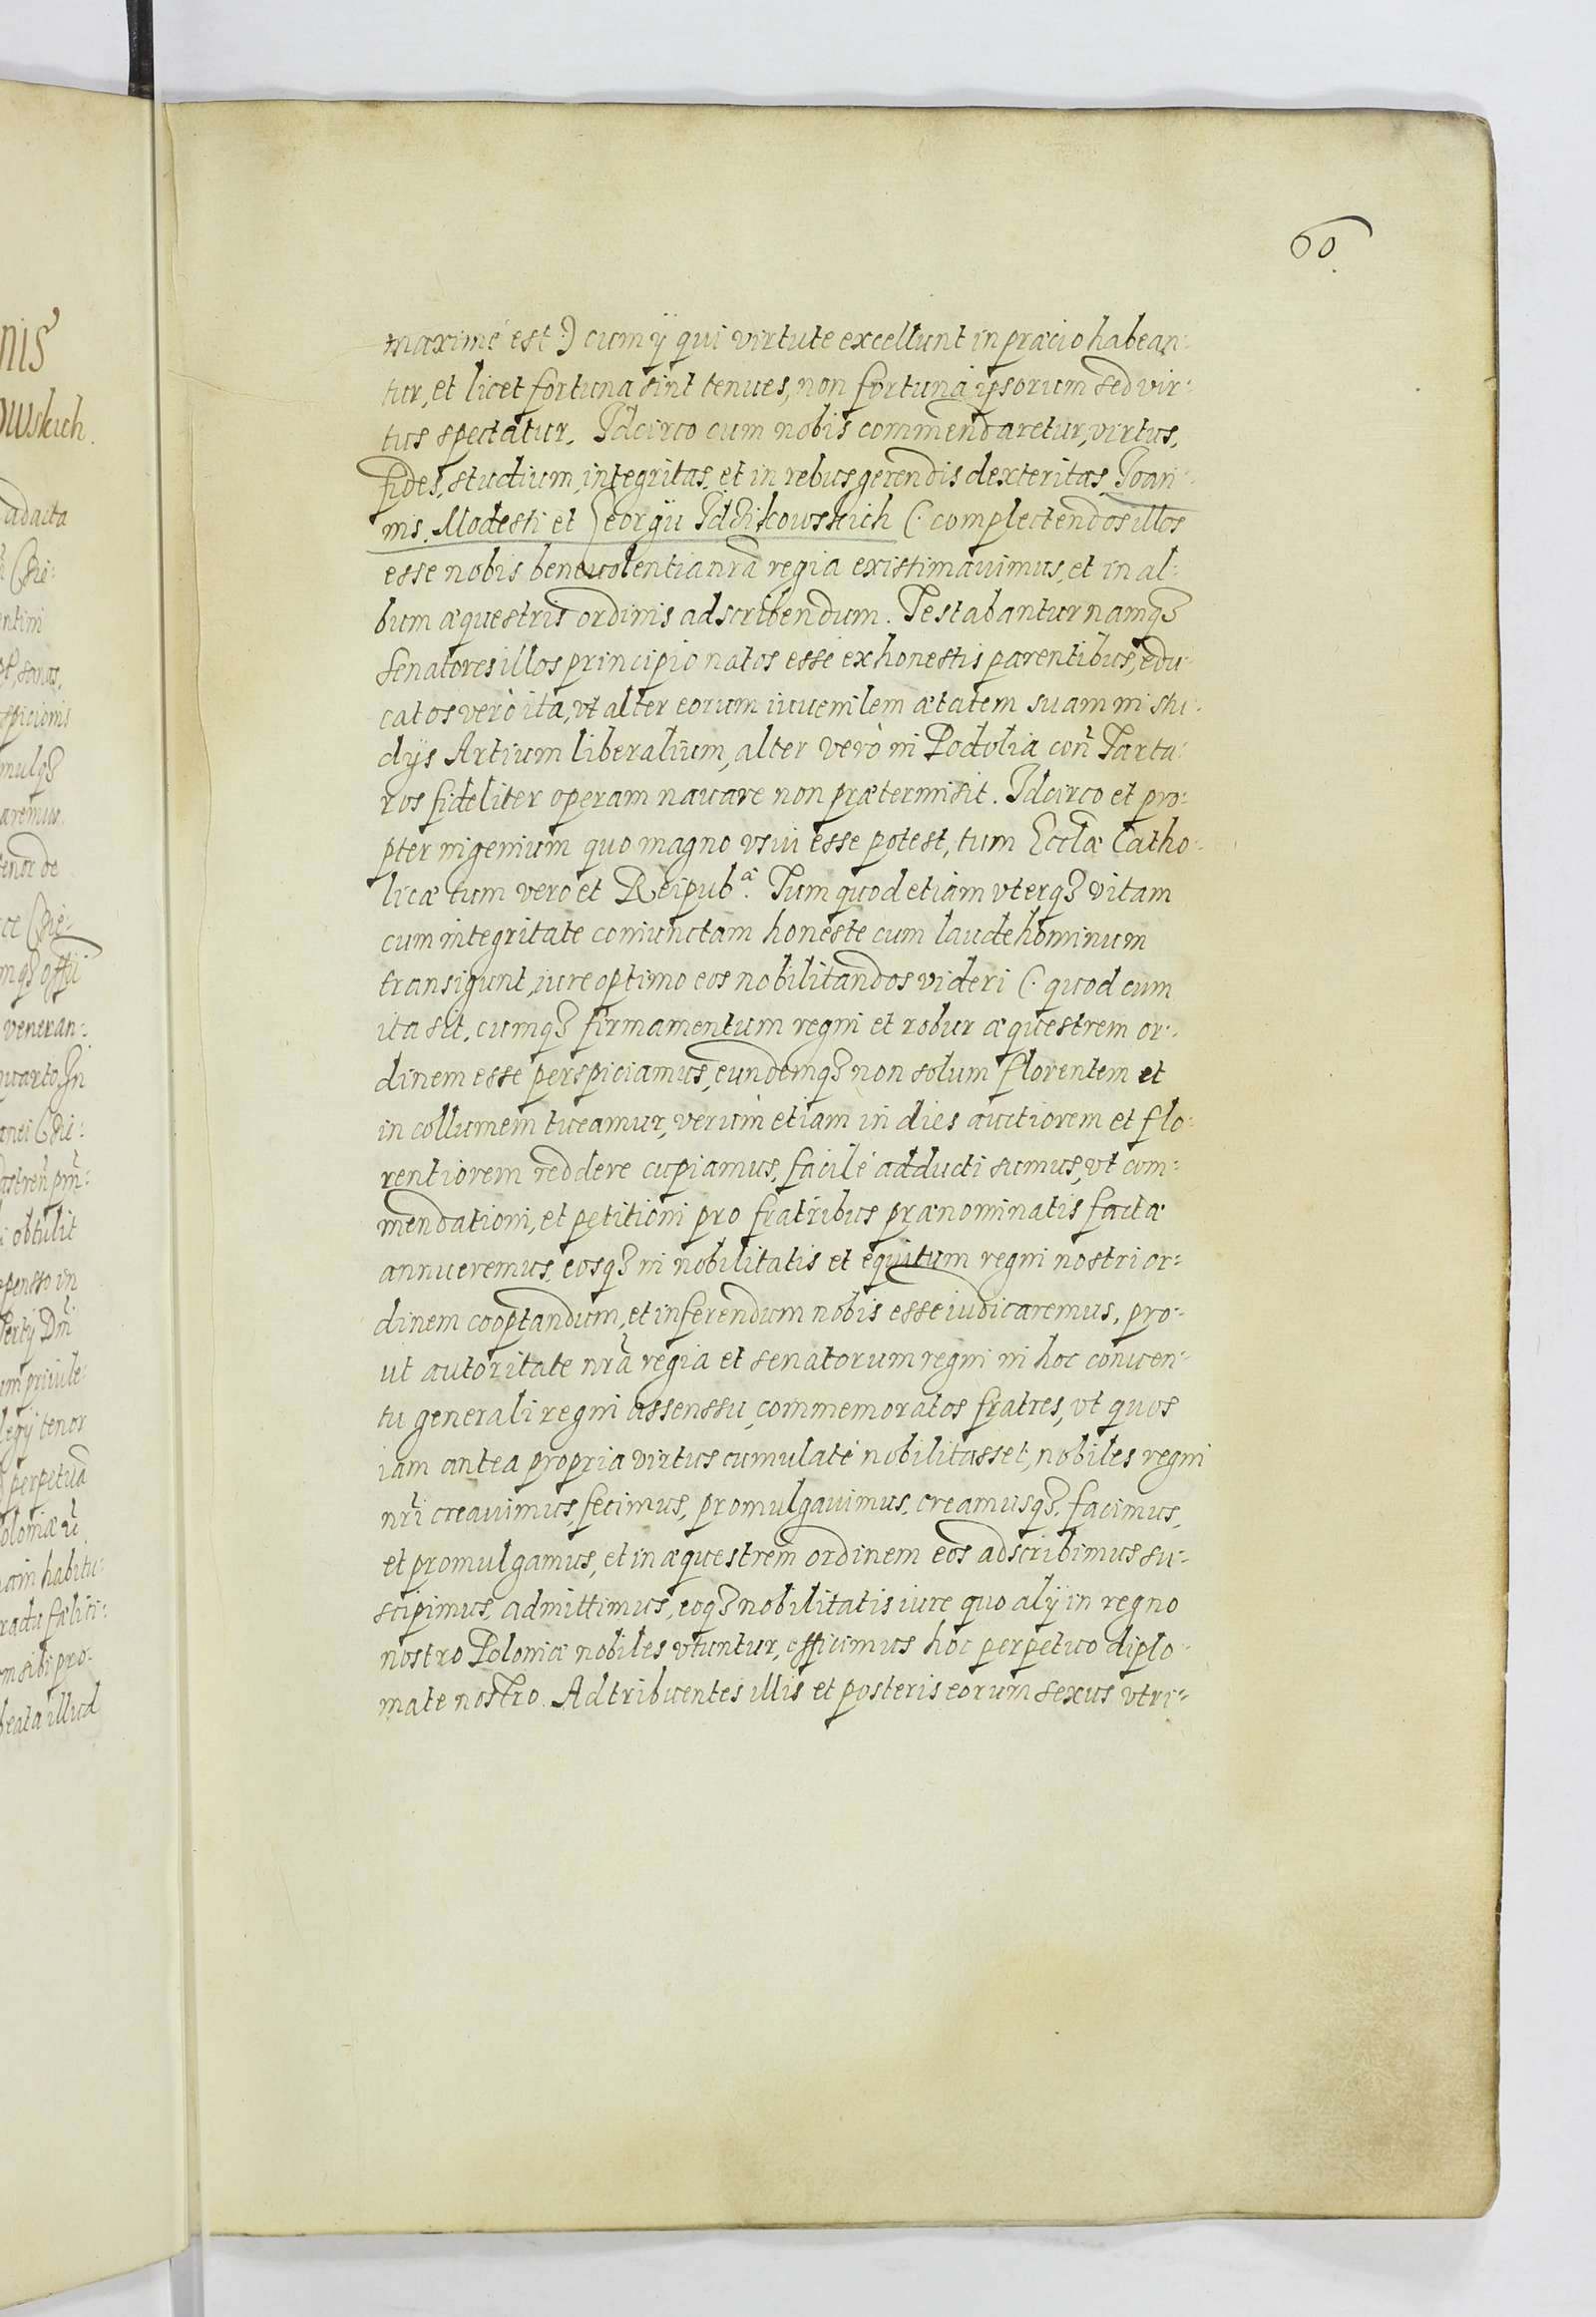 60.
maximé est:) cum ij qui virtute excellunt in præcio habean:
tur, et licet fortuna sint tenues, non fortuna ipsorum sed vir:
tus spectatur. Idcirco cum nobis commendaretur, virtus,
fides, studium, integritas, et in rebus gerendis dexteritas, Joan:
nis, Modesti et Georgii Idzikowskich (: complectendos illos
esse nobis beneuolentia nrã regia existimauimus, et in al:
bum æquestris ordinis adscribendum. Testabantur namq3
Senatores illos principio natos esse ex honestis parentibus, edu:
catos verò ita, vt alter eorum iuuenilem ætatem suam in stu:
dijs Artium liberalium, alter verò in Podolia con̄ Tarta:
ros fideliter operam nauare non prætermisit. Idcirco et pro:
pter ingenium quo magno vsui esse potest, tum Ecclæ Catho:
licæ tum vero et Reipub.ᵃ Tum quod etiam vterq3 vitam
cum integritate coniunctam honeste cum laude hominum
transigunt, iure optimo eos nobilitandos videri (: quod cum
ita sit, cumq3 firmamentum regni et robur æquestrem or:
dinem esse perspiciamus, eundemq3 non solum florentem et
in collumem tueamur, verùm etiam in dies auctiorem et flo:
rentiorem reddere cupiamus, facilé adducti sumus, vt com:
mendationi, et petitioni pro fratribus prænominatis factæ
annueremus, eosq3 in nobilitatis et equitum regni nostri or:
dinem cooptandum, et inferendum nobis esse iudicaremus, pro:
ut autoritate nrã regia et senatorum regni in hoc conuen:
tu generali regni assenssu, commemoratos fratres, vt quos
iam antea propria virtus cumulaté nobilitasset, nobiles regni
nrĩ creauimus, fecimus, promulgauimus, creamusq3, facimus,
et promulgamus, et in æquestrem ordinem eos adscribimus su:
scipimus, admittimus, eoq3 nobilitatis iure quo alij in regno
nostro Poloniæ nobiles vtuntur, efficimus hoc perpetuo diplo:
mate nostro. Adtribuentes illis et posteris eorum sexus vtri: